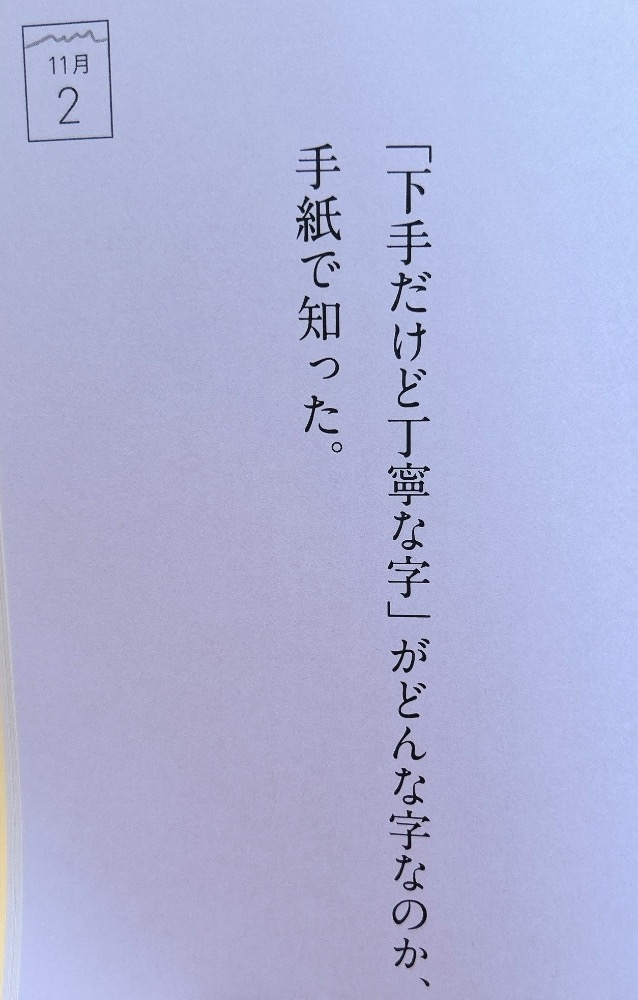 11月
2
「下手だけど丁寧な字」がどんな字なのか、
手紙で知った。